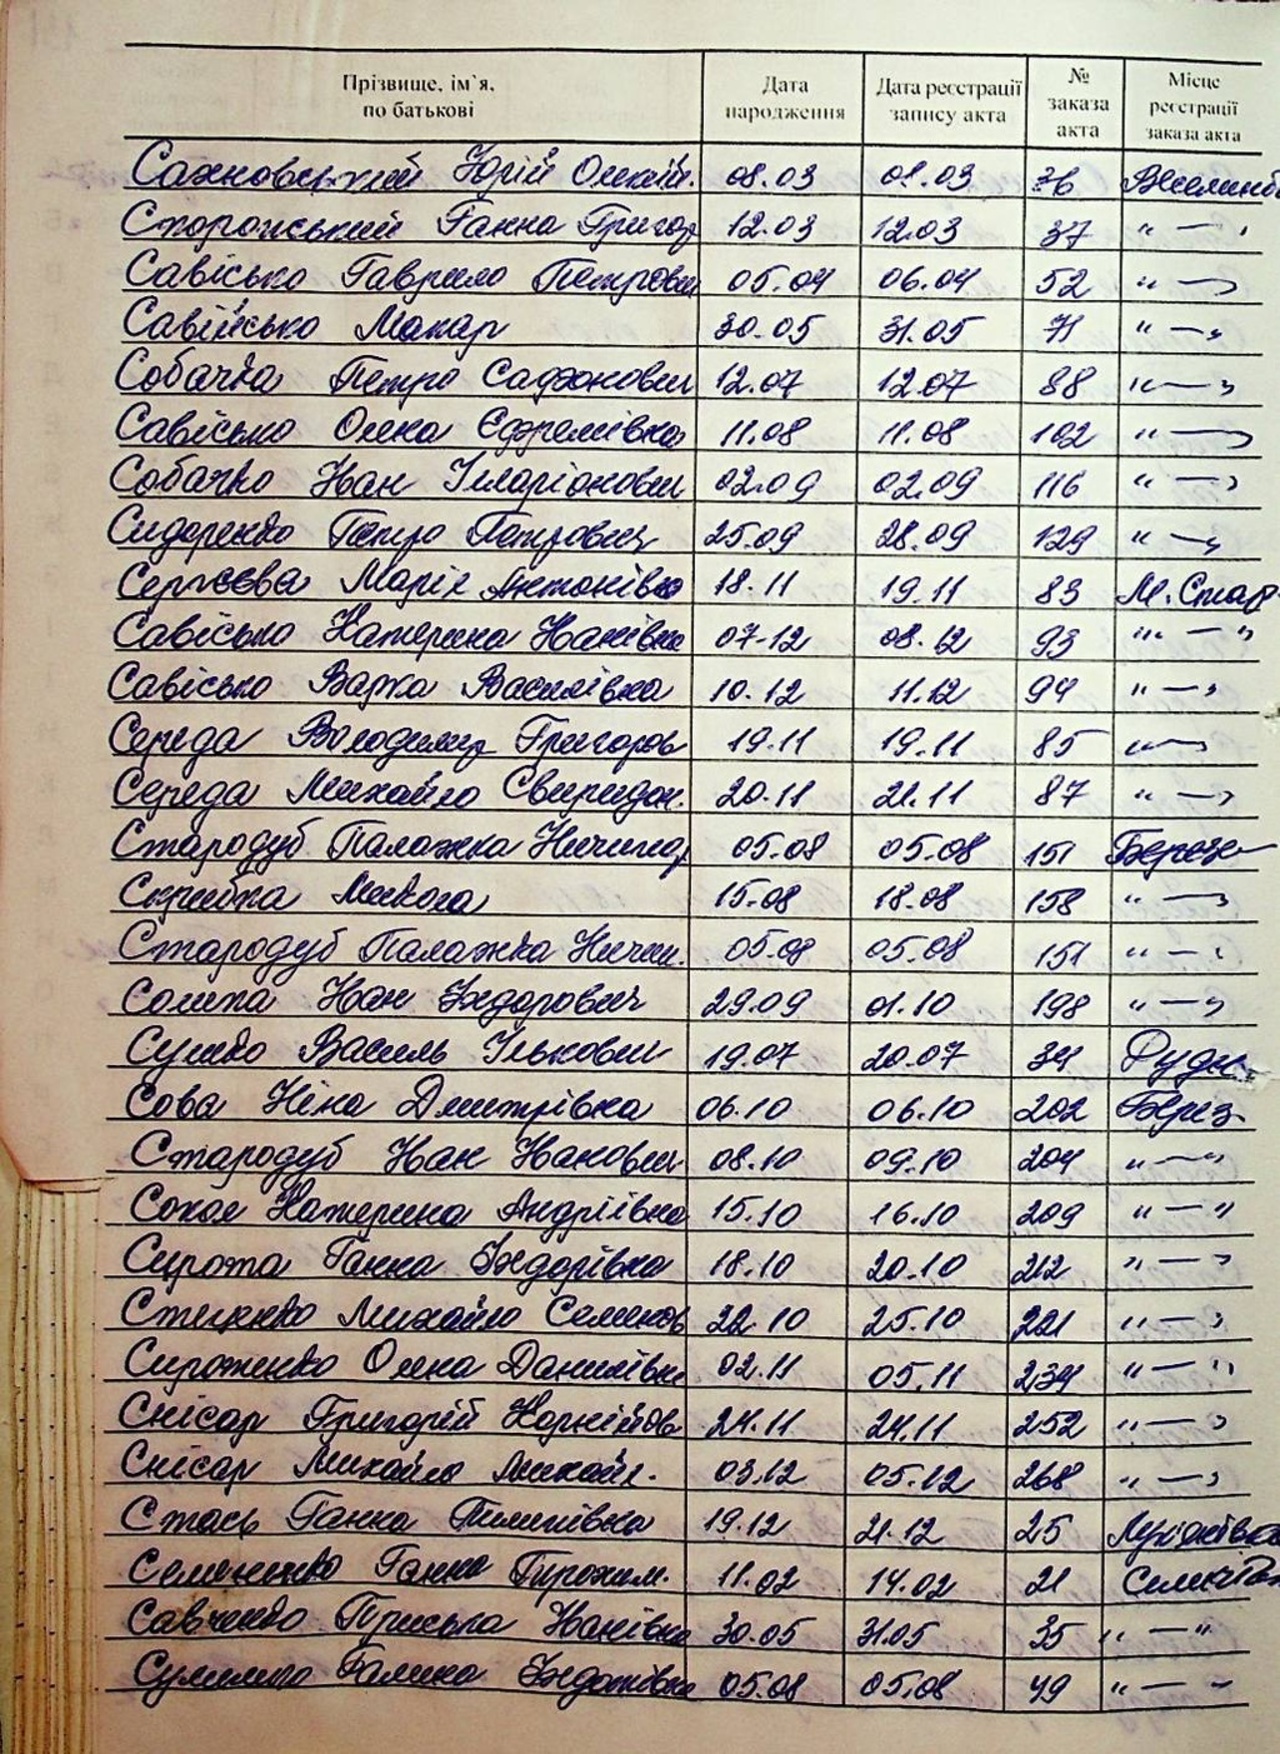 Прізвище, ім`я, по батькові | Дата народження | Дата реєстрації запису акта | № заказа акта | Місце реєстрації заказа акта
Сахновський Юрій Олексій. 08.03 08.03 36
Сторожський Ганна Григор 12.03 12.03 37 " — "
Савісько Гаврило Петрович 05.04 06.04 52 " — "
Савійсько Макар 30.05 31.05 71 " — "
Собачка Петро Сафонович 12.07 12.07 88 " — "
Савісько Олена Єфремівна 11.08 11.08 102 " — "
Собачко Іван Іларіонович 02.09 02.09 116 " — "
Сидоренко Петро Петрович 25.09 28.09 129 " — "
Сергєєва Марія Антонівна 18.11 19.11 83 М. Стар
Савісько Катерина Іванівна 07.12 08.12 93 " — "
Савісько Варка Василівна 10.12 11.12 94 " — "
Середа Володимир Григоров 19.11 19.11 85 " — "
Середа Михайло Свиридон. 20.11 21.11 87 " — "
Стародуб Палажка Ничипор 05.08 05.08 151 Березе
Скрибка Микола 15.08 18.08 158 " — "
Стародуб Палажка Ничип. 05.08 05.08 151 " — "
Солипа Іван Федорович 29.09 01.10 198 " — "
Сушко Василь Ількович 19.07 20.07 34 Рудн.
Сова Ніна Дмитрівна 06.10 06.10 202 Берез.
Стародуб Іван Іванович 08.10 09.10 204 " — "
Сокол Катерина Андріївна 15.10 16.10 209 " — "
Сирота Ганна Федорівна 18.10 20.10 212 " — "
Стиенко Михайло Семенов 22.10 25.10 221 " — "
Сироженко Олена Данилівна 02.11 05.11 234 " — "
Снісар Григорій Корнійов 24.11 24.11 252 " — "
Снісар Михайло Михайл. 03.12 05.12 268 " — "
Стась Ганна Пилипівна 19.12 21.12 25
Семененко Ганна 11.02 14.02 21
Савченко Приська Іванівна 30.05 31.05 35 " — "
Галина 05.08 05.08 49 " — "